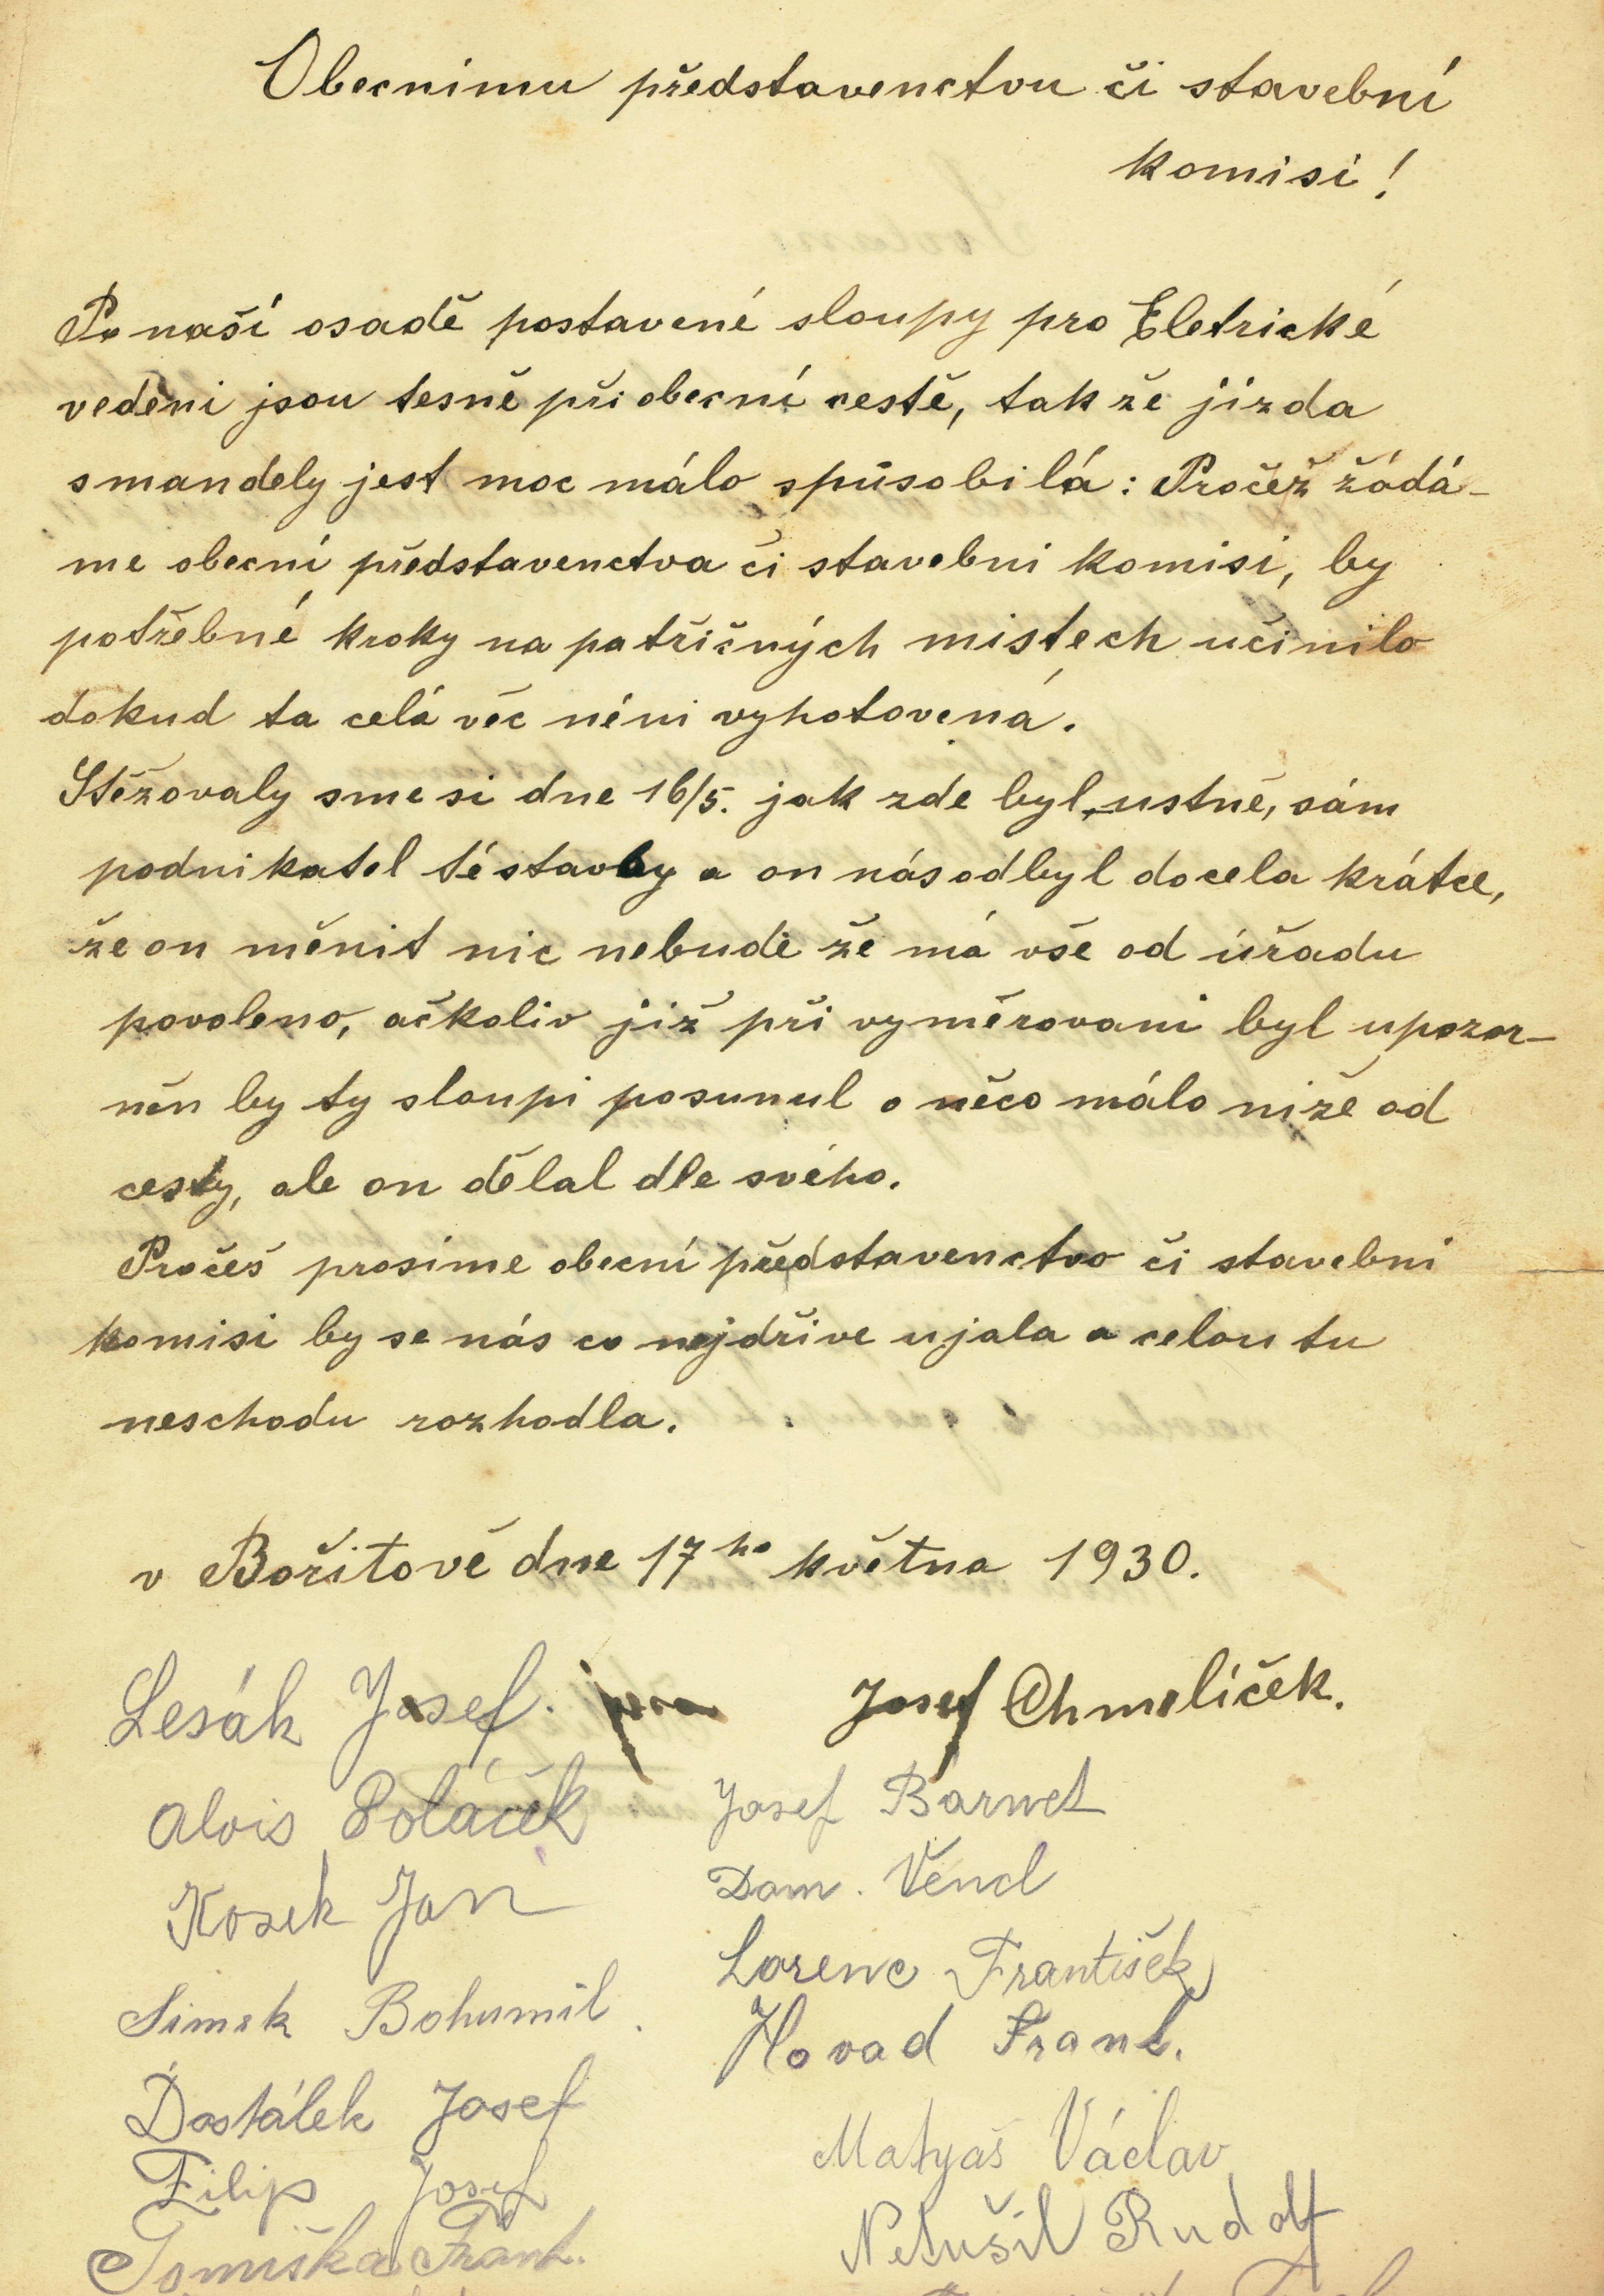 Obecnimu představenctvu či stavební
komisi!
Po naší osadě postavené sloupy pro Eletrické
veděni jsou tesně při obecní cestě, tak že jizda
smandely jest moc málo spůsobilá: Pročež žádá-
me obecní představenctva či stavebni komisi, by
potřebné kroky na patřičných mistech učinilo
dokud ta celá věc néni vyhotovená.
Stěžovaly sme si dne 16/5. jak zde byl, ustně, sám
podnikatel té stavby a on nás odbyl docela krátce,
že on měnit nic nebude že má vše od úřadu
povoleno, ačkoliv již při vyměrovani byl upozor-
něn by ty sloupi posunul o něco málo niže od
cesty, ale on dělal dle svého.
Pročeš prosime obecní představenctvo či stavebni
komisi by se nás co nejdřive ujala a celou tu
neschodu rozhodla.
v Bořitově dne 17ho května 1930.
Lesák Josef. Josef Chmelíček.
Alois Poláček Josef Barnet
Kosek Jan Dom. Véncl
Simek Bohumil. Lorenc František
Hovad Frant.
Dostálek Josef
Matyáš Václav
Filip Josef
Netušil Rudolf
Tomiška Frant.